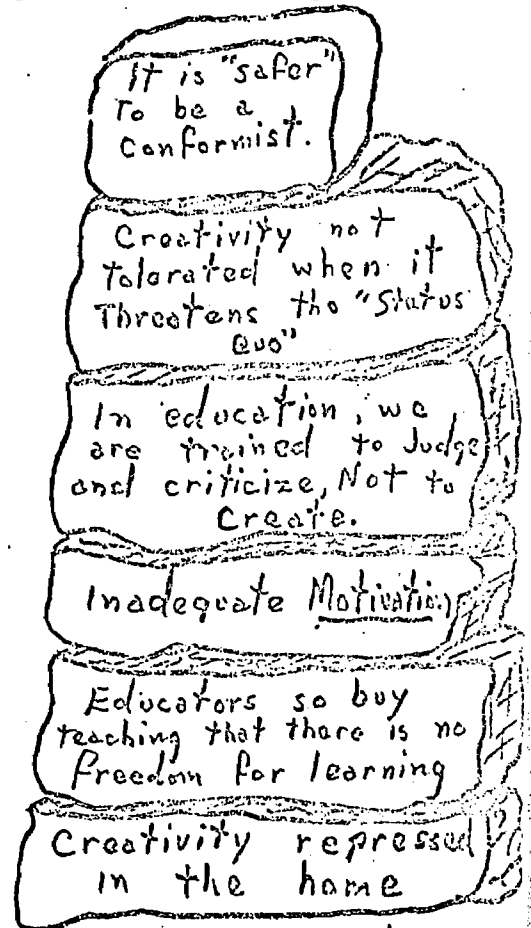 It is "safer"
To be a
Conformist.
Creativity not
tolerated when it
Threatens the "Status
Quo"
In education, we
are trained to Judge
and criticize, Not to
Create.
Inadequate Motivation
Educators so buy
teaching that there is no
freedom for learning
Creativity repressed
in the home